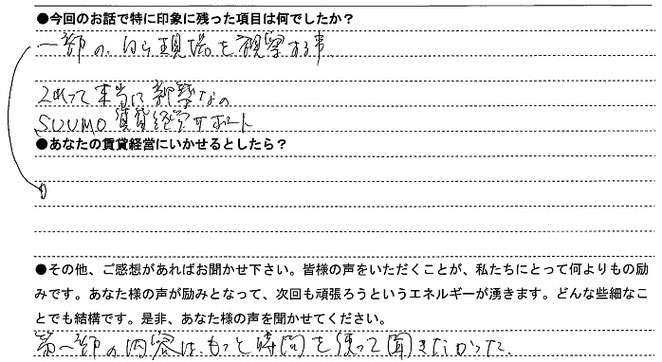 ●今回のお話で特に印象に残った項目は何でしたか？
一部の、自ら現場を視察する事
これって本当に部数なの
SUUMO賃貸経営サポート
●あなたの賃貸経営にいかせるとしたら？
●その他、ご感想があればお聞かせ下さい。皆様の声をいただくことが、私たちにとって何よりもの励
みです。あなた様の声が励みとなって、次回も頑張ろうというエネルギーが湧きます。どんな些細なこ
とでも結構です。是非、あなた様の声を聞かせてください。
第一部の内容は、もっと時間を使って聞きたかった